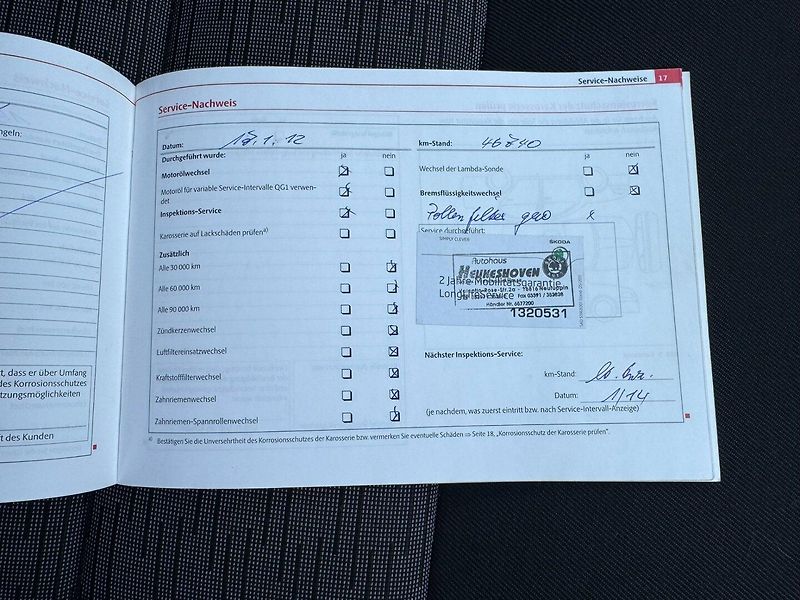 Service-Nachweise 17
Service-Nachweis
ngeln:
Datum: 1.12
km-Stand:
Durchgeführt wurde: ja nein
ja nein
Motorölwechsel
Wechsel der Lambda-Sonde
Motoröl für variable Service-Intervalle QG1 verwen-
det
Bremsflüssigkeitswechsel
Inspektions-Service
Pollenfilter gew x
Karosserie auf Lackschäden prüfen a)
Service durchgeführt:
SIMPLY CLEVER ŠKODA
Zusätzlich
Autohaus
Alle 30 000 km
HEUKESHOVEN
2 Jahre Mobilitätsgarantie
Alle 60 000 km
16816 Neuruppin
LongLifeService Fax 03391 /
Händler Nr. 6637200
Alle 90 000 km
1320531
Zündkerzenwechsel
Luftfiltereinsatzwechsel
Nächster Inspektions-Service:
Kraftstofffilterwechsel
km-Stand:
Zahnriemenwechsel
Datum: 1/14
(je nachdem, was zuerst eintritt bzw. nach Service-Intervall-Anzeige)
Zahnriemen-Spannrollenwechsel
a) Bestätigen Sie die Unversehrtheit des Korrosionsschutzes der Karosserie bzw. vermerken Sie eventuelle Schäden ⇒ Seite 18, „Korrosionsschutz der Karosserie prüfen“.
t, dass er über Umfang
des Korrosionsschutzes
tzungsmöglichkeiten
ft des Kunden